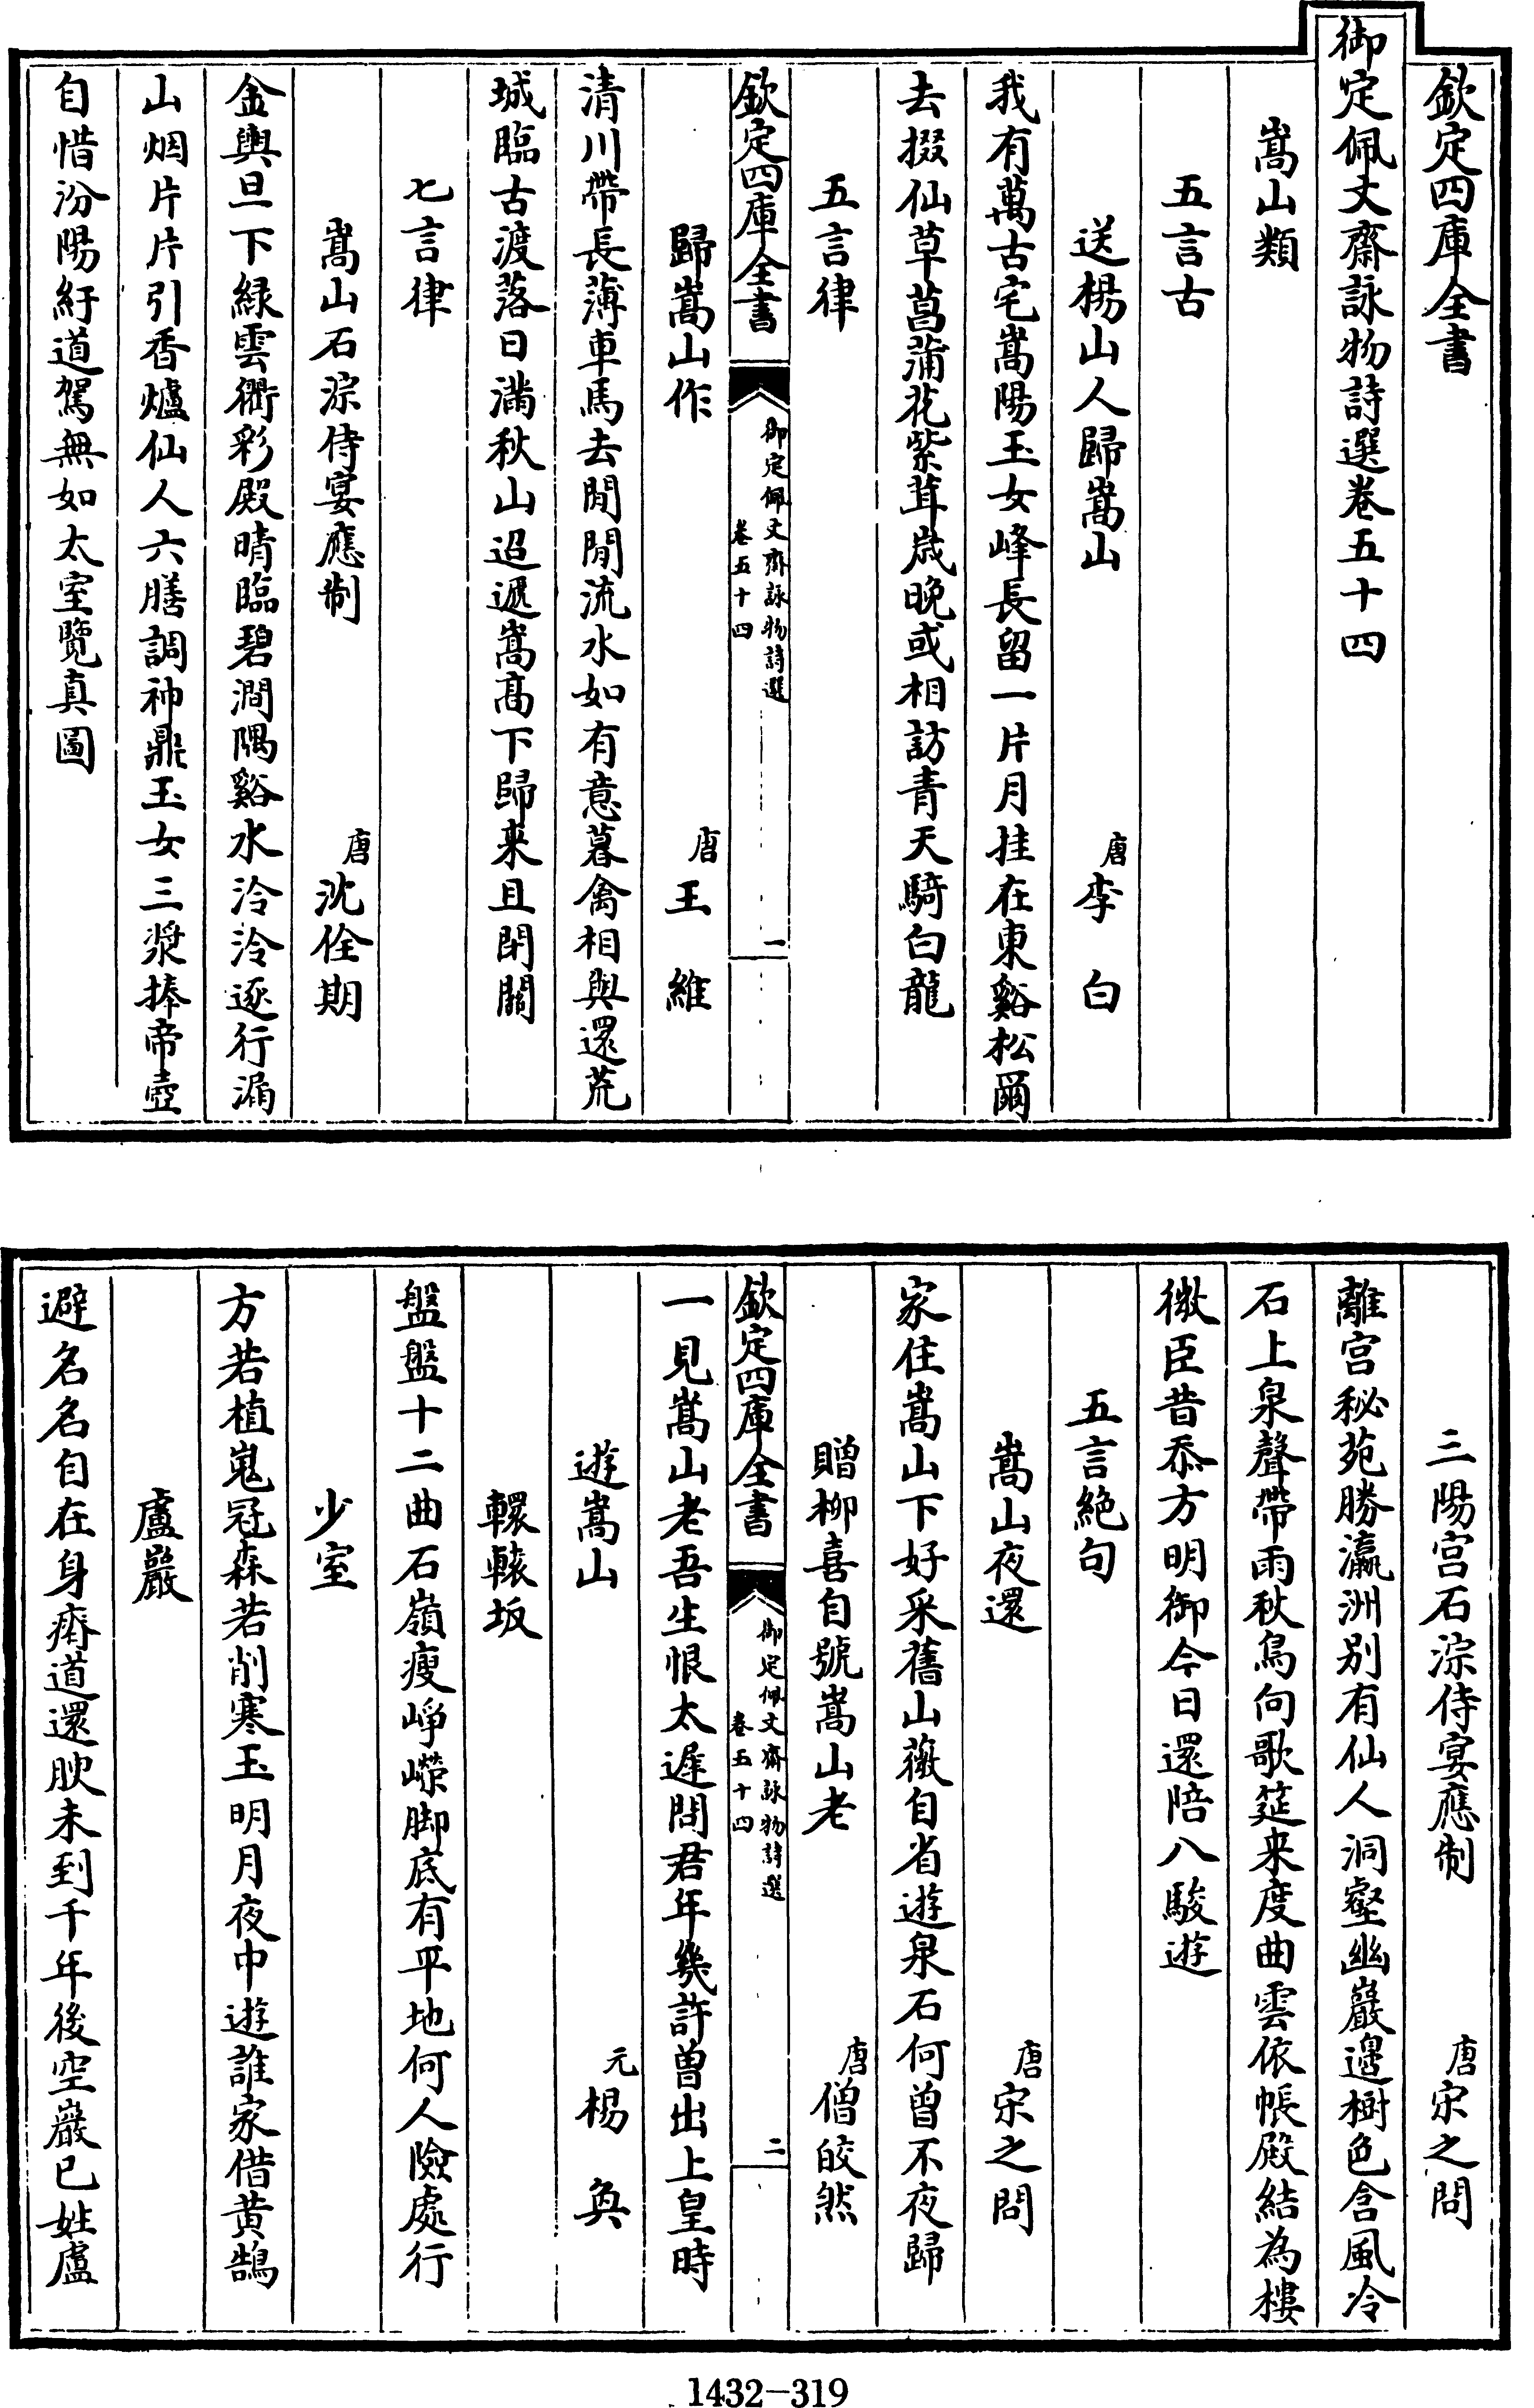 欽定四庫全書
御定佩文齋詠物詩選卷五十四
嵩山類
五言古
送楊山人歸嵩山 唐李 白
我有萬古宅嵩陽玉女峰長留一片月挂在東谿松爾
去掇仙草菖蒲花紫茸嵗晚或相訪青天騎白龍
五言律
欽定四庫全書 御定佩文齋詠物詩選 卷五十四 一
歸嵩山作 唐王 維
清川帶長薄車馬去閒閒流水如有意暮禽相與還荒
城臨古渡落日滿秋山迢遞嵩髙下歸来且閉關
七言律
嵩山石淙侍宴應制 唐沈佺期
金輿旦下緑雲衢彩殿晴臨碧澗隅谿水泠泠逐行漏
山烟片片引香爐仙人六膳調神鼎玉女三漿捧帝壺
自惜汾陽紆道駕無如太室覽真圖
三陽宫石淙侍宴應制 唐宋之問
離宫秘苑勝瀛洲别有仙人洞壑幽巖邉樹色含風冷
石上泉聲帶雨秋鳥向歌筵来度曲雲依帳殿結為樓
微臣昔忝方明御今日還陪八駿遊
五言絶句
嵩山夜還 唐宋之問
家住嵩山下好采舊山薇自省遊泉石何曾不夜歸
贈柳喜自號嵩山老 唐僧皎然
欽定四庫全書 御定佩文齋詠物詩選 卷五十四 二
一見嵩山老吾生恨太遲問君年幾許曽出上皇時
遊嵩山 元楊 奐
轘轅坂
盤盤十二曲石嶺瘦崢嶸脚底有平地何人險處行
少室
方若植嵬冠森若削寒玉明月夜中遊誰家借黄鵠
盧巖
避名名自在身瘠道還腴未到千年後空巖已姓盧
1432-319